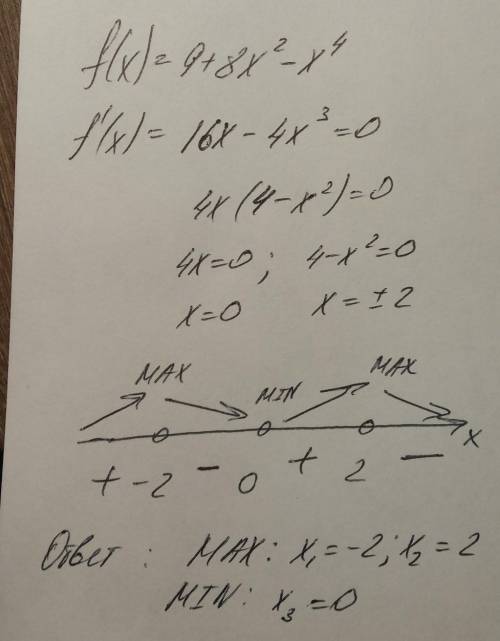 f(x)=9+8x²-x⁴
f'(x)=16x-4x³=0
4x(4-x²)=0
4x=0; 4-x²=0
x=0 x=±2
MAX MIN MAX
x
+ -2 - 0 + 2 -
Ответ: MAX: x₁=-2; x₂=2
MIN: x₃=0